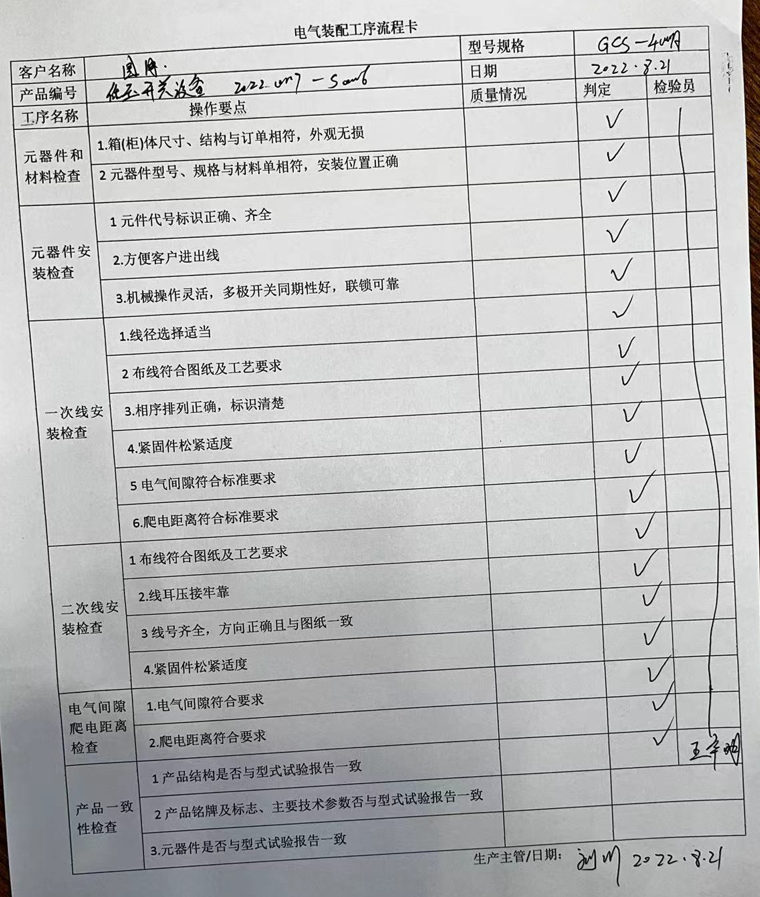 电气装配工序流程卡
客户名称 型号规格
产品编号 低压开关设备 日期 2022.8.21
工序名称 操作要点 质量情况 判定 检验员
元器件和材料检查 1.箱(柜)体尺寸、结构与订单相符，外观无损 ✓
2 元器件型号、规格与材料单相符，安装位置正确 ✓
元器件安装检查 1 元件代号标识正确、齐全 ✓
2.方便客户进出线 ✓
3.机械操作灵活，多极开关同期性好，联锁可靠 ✓
一次线安装检查 1.线径选择适当 ✓
2 布线符合图纸及工艺要求 ✓
3.相序排列正确，标识清楚 ✓
4.紧固件松紧适度 ✓
5 电气间隙符合标准要求 ✓
6.爬电距离符合标准要求 ✓
二次线安装检查 1 布线符合图纸及工艺要求 ✓
2.线耳压接牢靠 ✓
3 线号齐全，方向正确且与图纸一致 ✓
4.紧固件松紧适度 ✓
电气间隙爬电距离检查 1.电气间隙符合要求 ✓
2.爬电距离符合要求 ✓
产品一致性检查 1 产品结构是否与型式试验报告一致 ✓
2 产品铭牌及标志、主要技术参数否与型式试验报告一致
3.元器件是否与型式试验报告一致
生产主管/日期： 2022.8.21